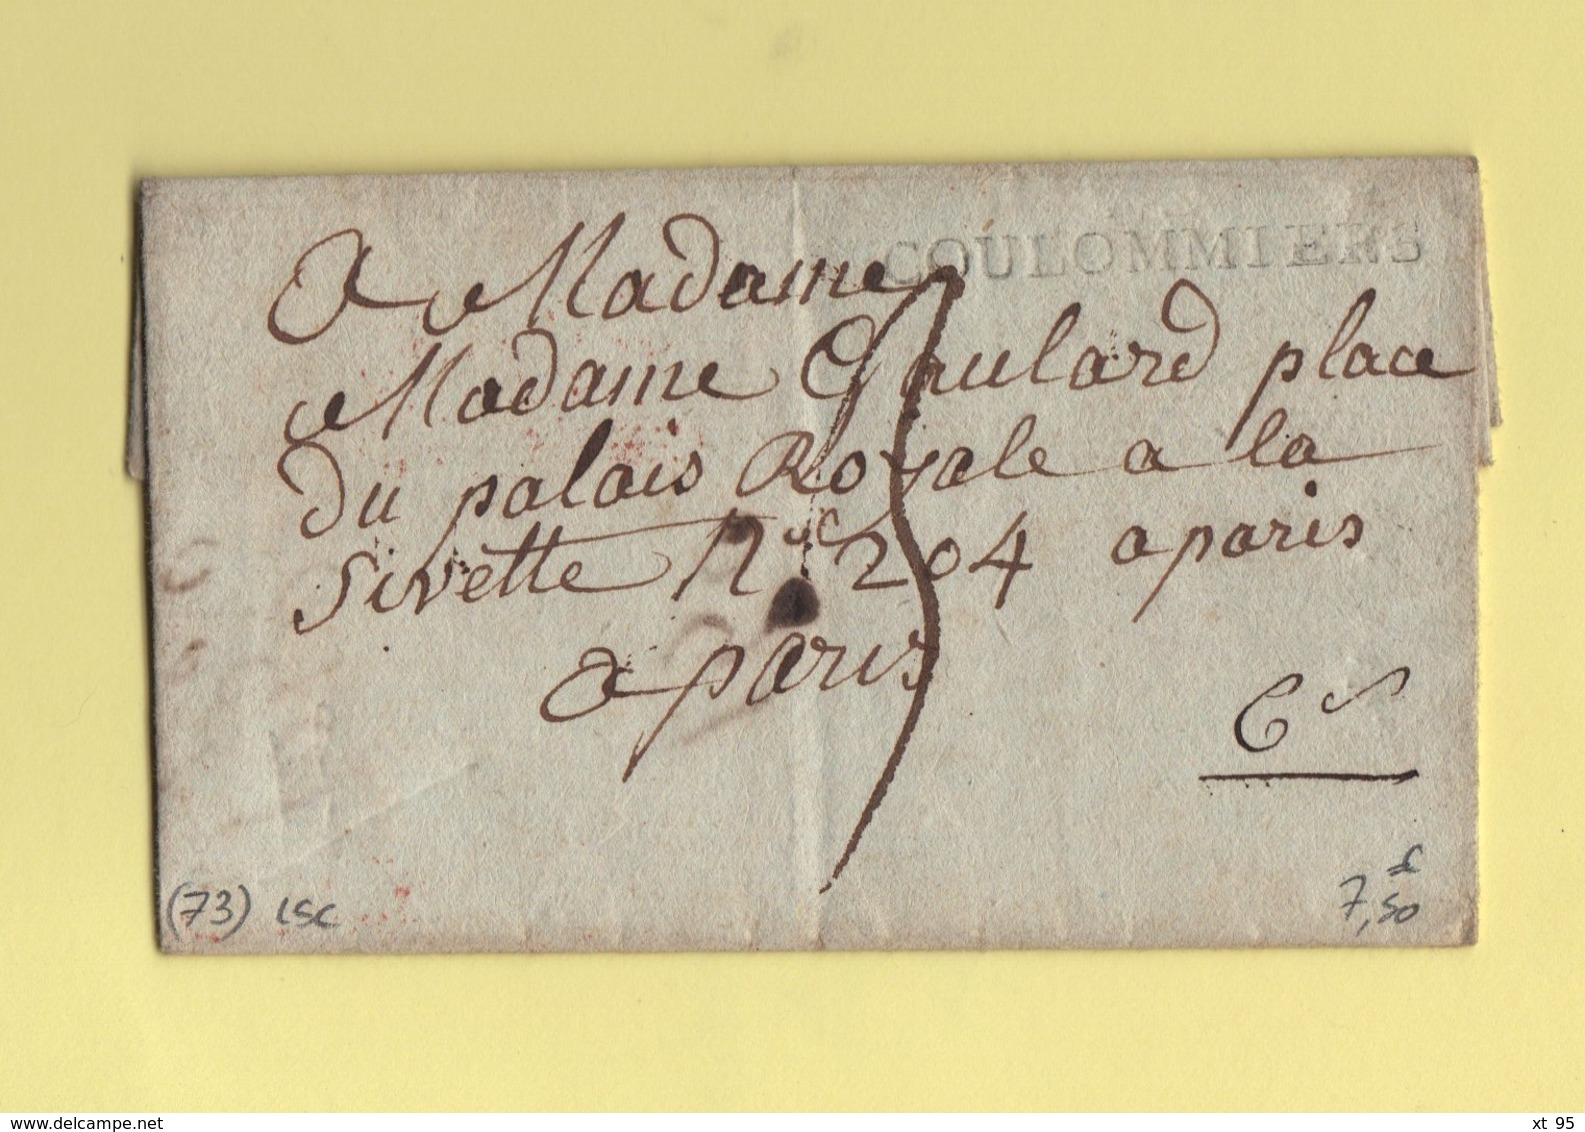 COULOMMIERS
A Madame
Madame Goulard place
du palais Royale a la
Sivette N° 204 a paris
a paris
(73) LSC
7,50
delcampe.net
xt 95